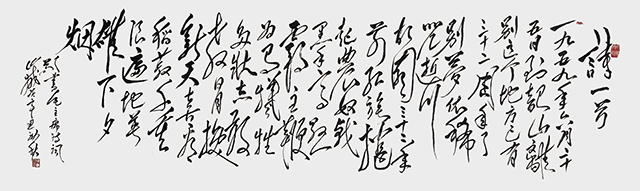 诗一首
一九五九年六月二十
五日到韶山離
别这个地方已有
三十二周年了
别梦依稀
咒逝川
故園三十二年
前红旗捲
起農奴戟
黑手高懸
霸主鞭
为有犧牲
多壮志敢
教日月换
新天喜看
稻菽千重
浪遍地英
雄下夕
烟